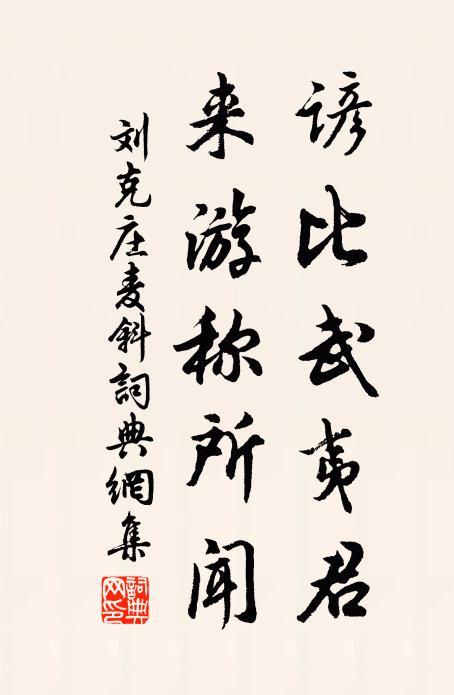 谚比武夷君
来游称所闻
刘克庄麦斜詞典網集
詞典网印